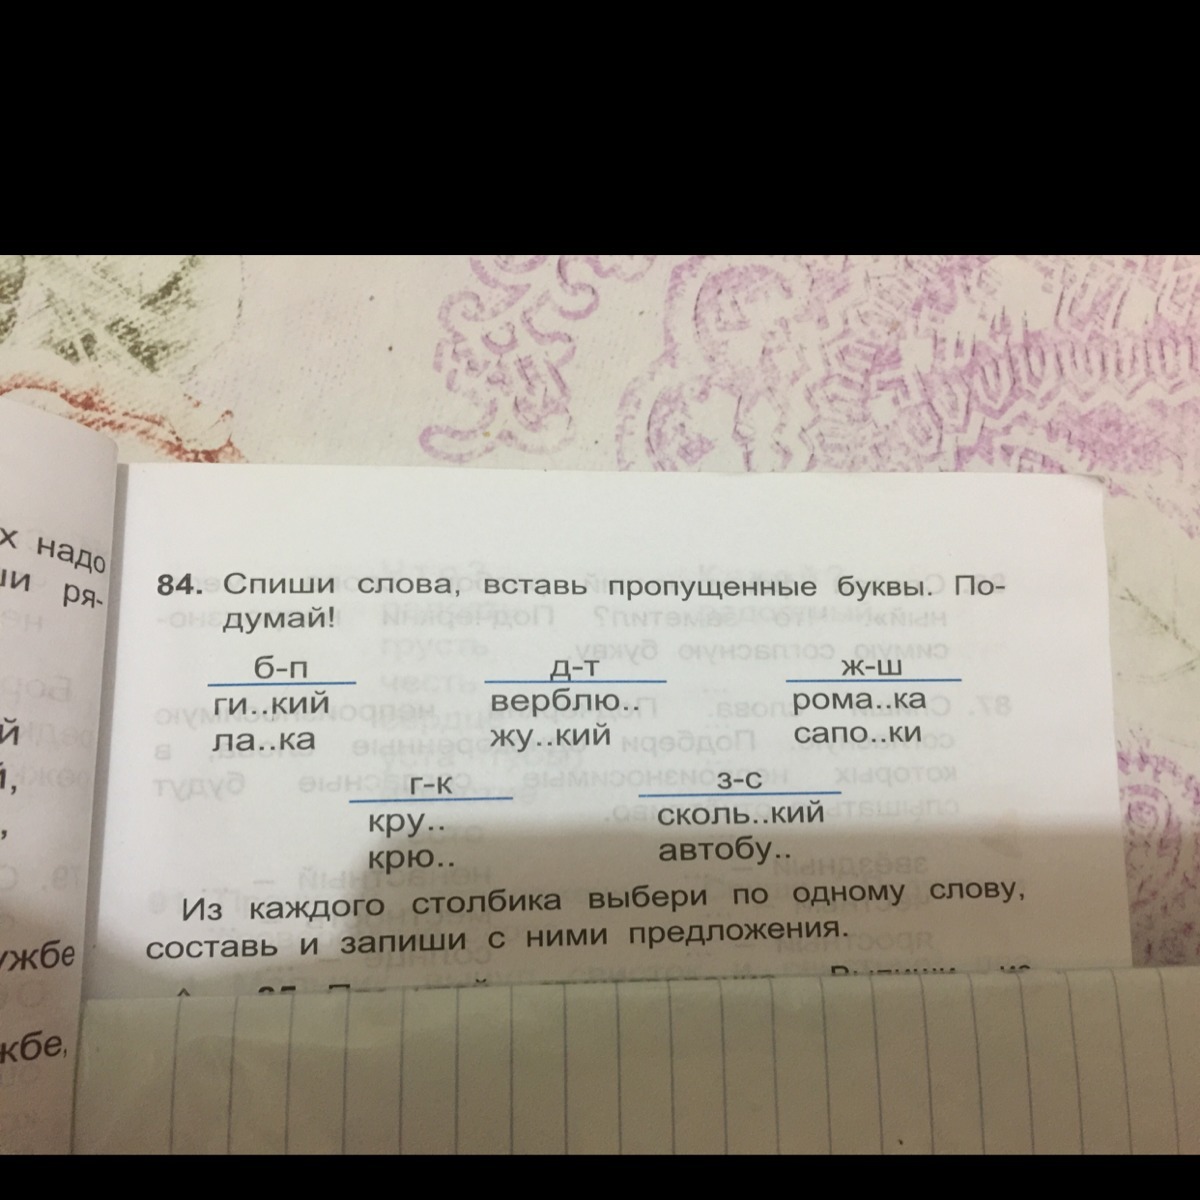 х надо
ши ря-
й
й,
,
ужбе
жбе,
84. Спиши слова, вставь пропущенные буквы. По-
думай!
б-п д-т ж-ш
ги..кий верблю.. рома..ка
ла..ка жу..кий сапо..ки
г-к з-с
кру.. сколь..кий
крю.. автобу..
Из каждого столбика выбери по одному слову,
составь и запиши с ними предложения.